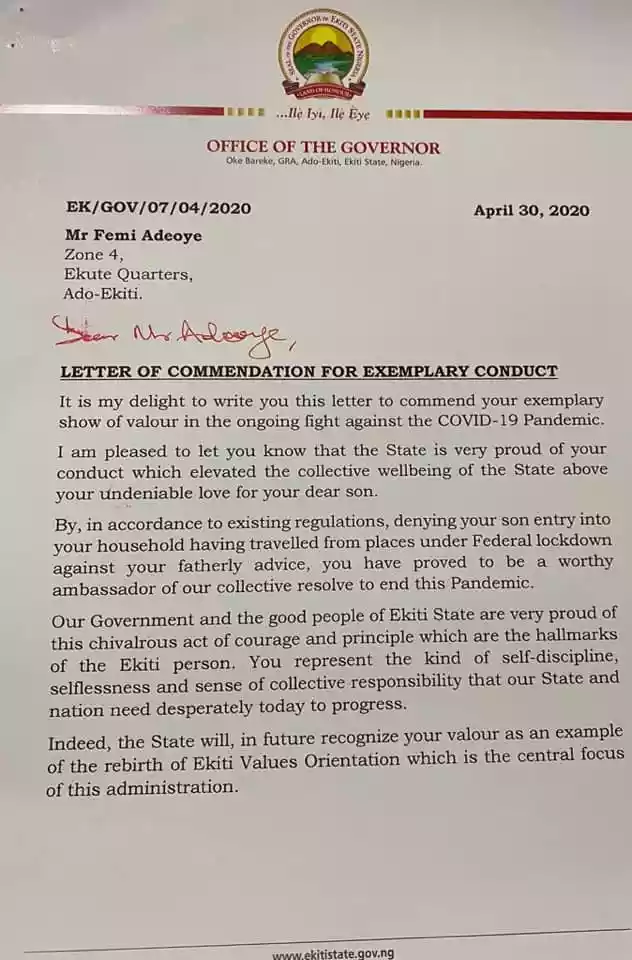 SEAL OF THE GOVERNOR OF EKITI STATE NIGERIA
LAND OF HONOUR
...Ilẹ Iyi, Ilẹ Ẹyẹ
OFFICE OF THE GOVERNOR
Oke Bareke, GRA, Ado-Ekiti, Ekiti State, Nigeria.
EK/GOV/07/04/2020
April 30, 2020
Mr Femi Adeoye
Zone 4,
Ekute Quarters,
Ado-Ekiti.
Dear Mr Adeoye,
LETTER OF COMMENDATION FOR EXEMPLARY CONDUCT
It is my delight to write you this letter to commend your exemplary
show of valour in the ongoing fight against the COVID-19 Pandemic.
I am pleased to let you know that the State is very proud of your
conduct which elevated the collective wellbeing of the State above
your undeniable love for your dear son.
By, in accordance to existing regulations, denying your son entry into
your household having travelled from places under Federal lockdown
against your fatherly advice, you have proved to be a worthy
ambassador of our collective resolve to end this Pandemic.
Our Government and the good people of Ekiti State are very proud of
this chivalrous act of courage and principle which are the hallmarks
of the Ekiti person. You represent the kind of self-discipline,
selflessness and sense of collective responsibility that our State and
nation need desperately today to progress.
Indeed, the State will, in future recognize your valour as an example
of the rebirth of Ekiti Values Orientation which is the central focus
of this administration.
www.ekitistate.gov.ng